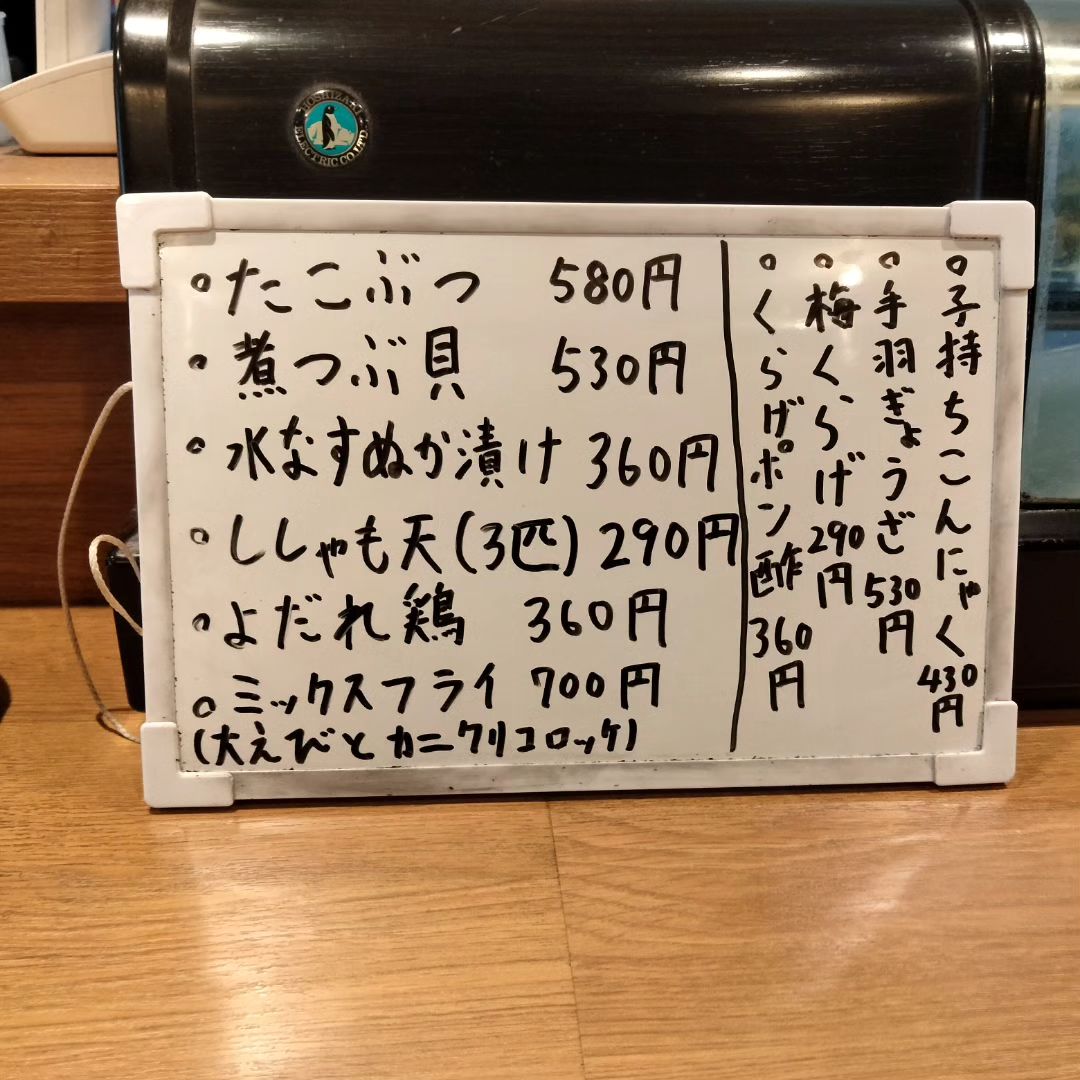 HOSHIZAKI ELECTRIC CO.LTD
○たこぶつ 580円
○煮つぶ貝 530円
○水なすぬか漬け 360円
○ししゃも天(3匹) 290円
○よだれ鶏 360円
○ミックスフライ 700円
(大えびとカニクリコロッケ)
○子持ちこんにゃく 430円
○手羽ぎょうざ 530円
○梅くらげ 290円
○くらげポン酢 360円